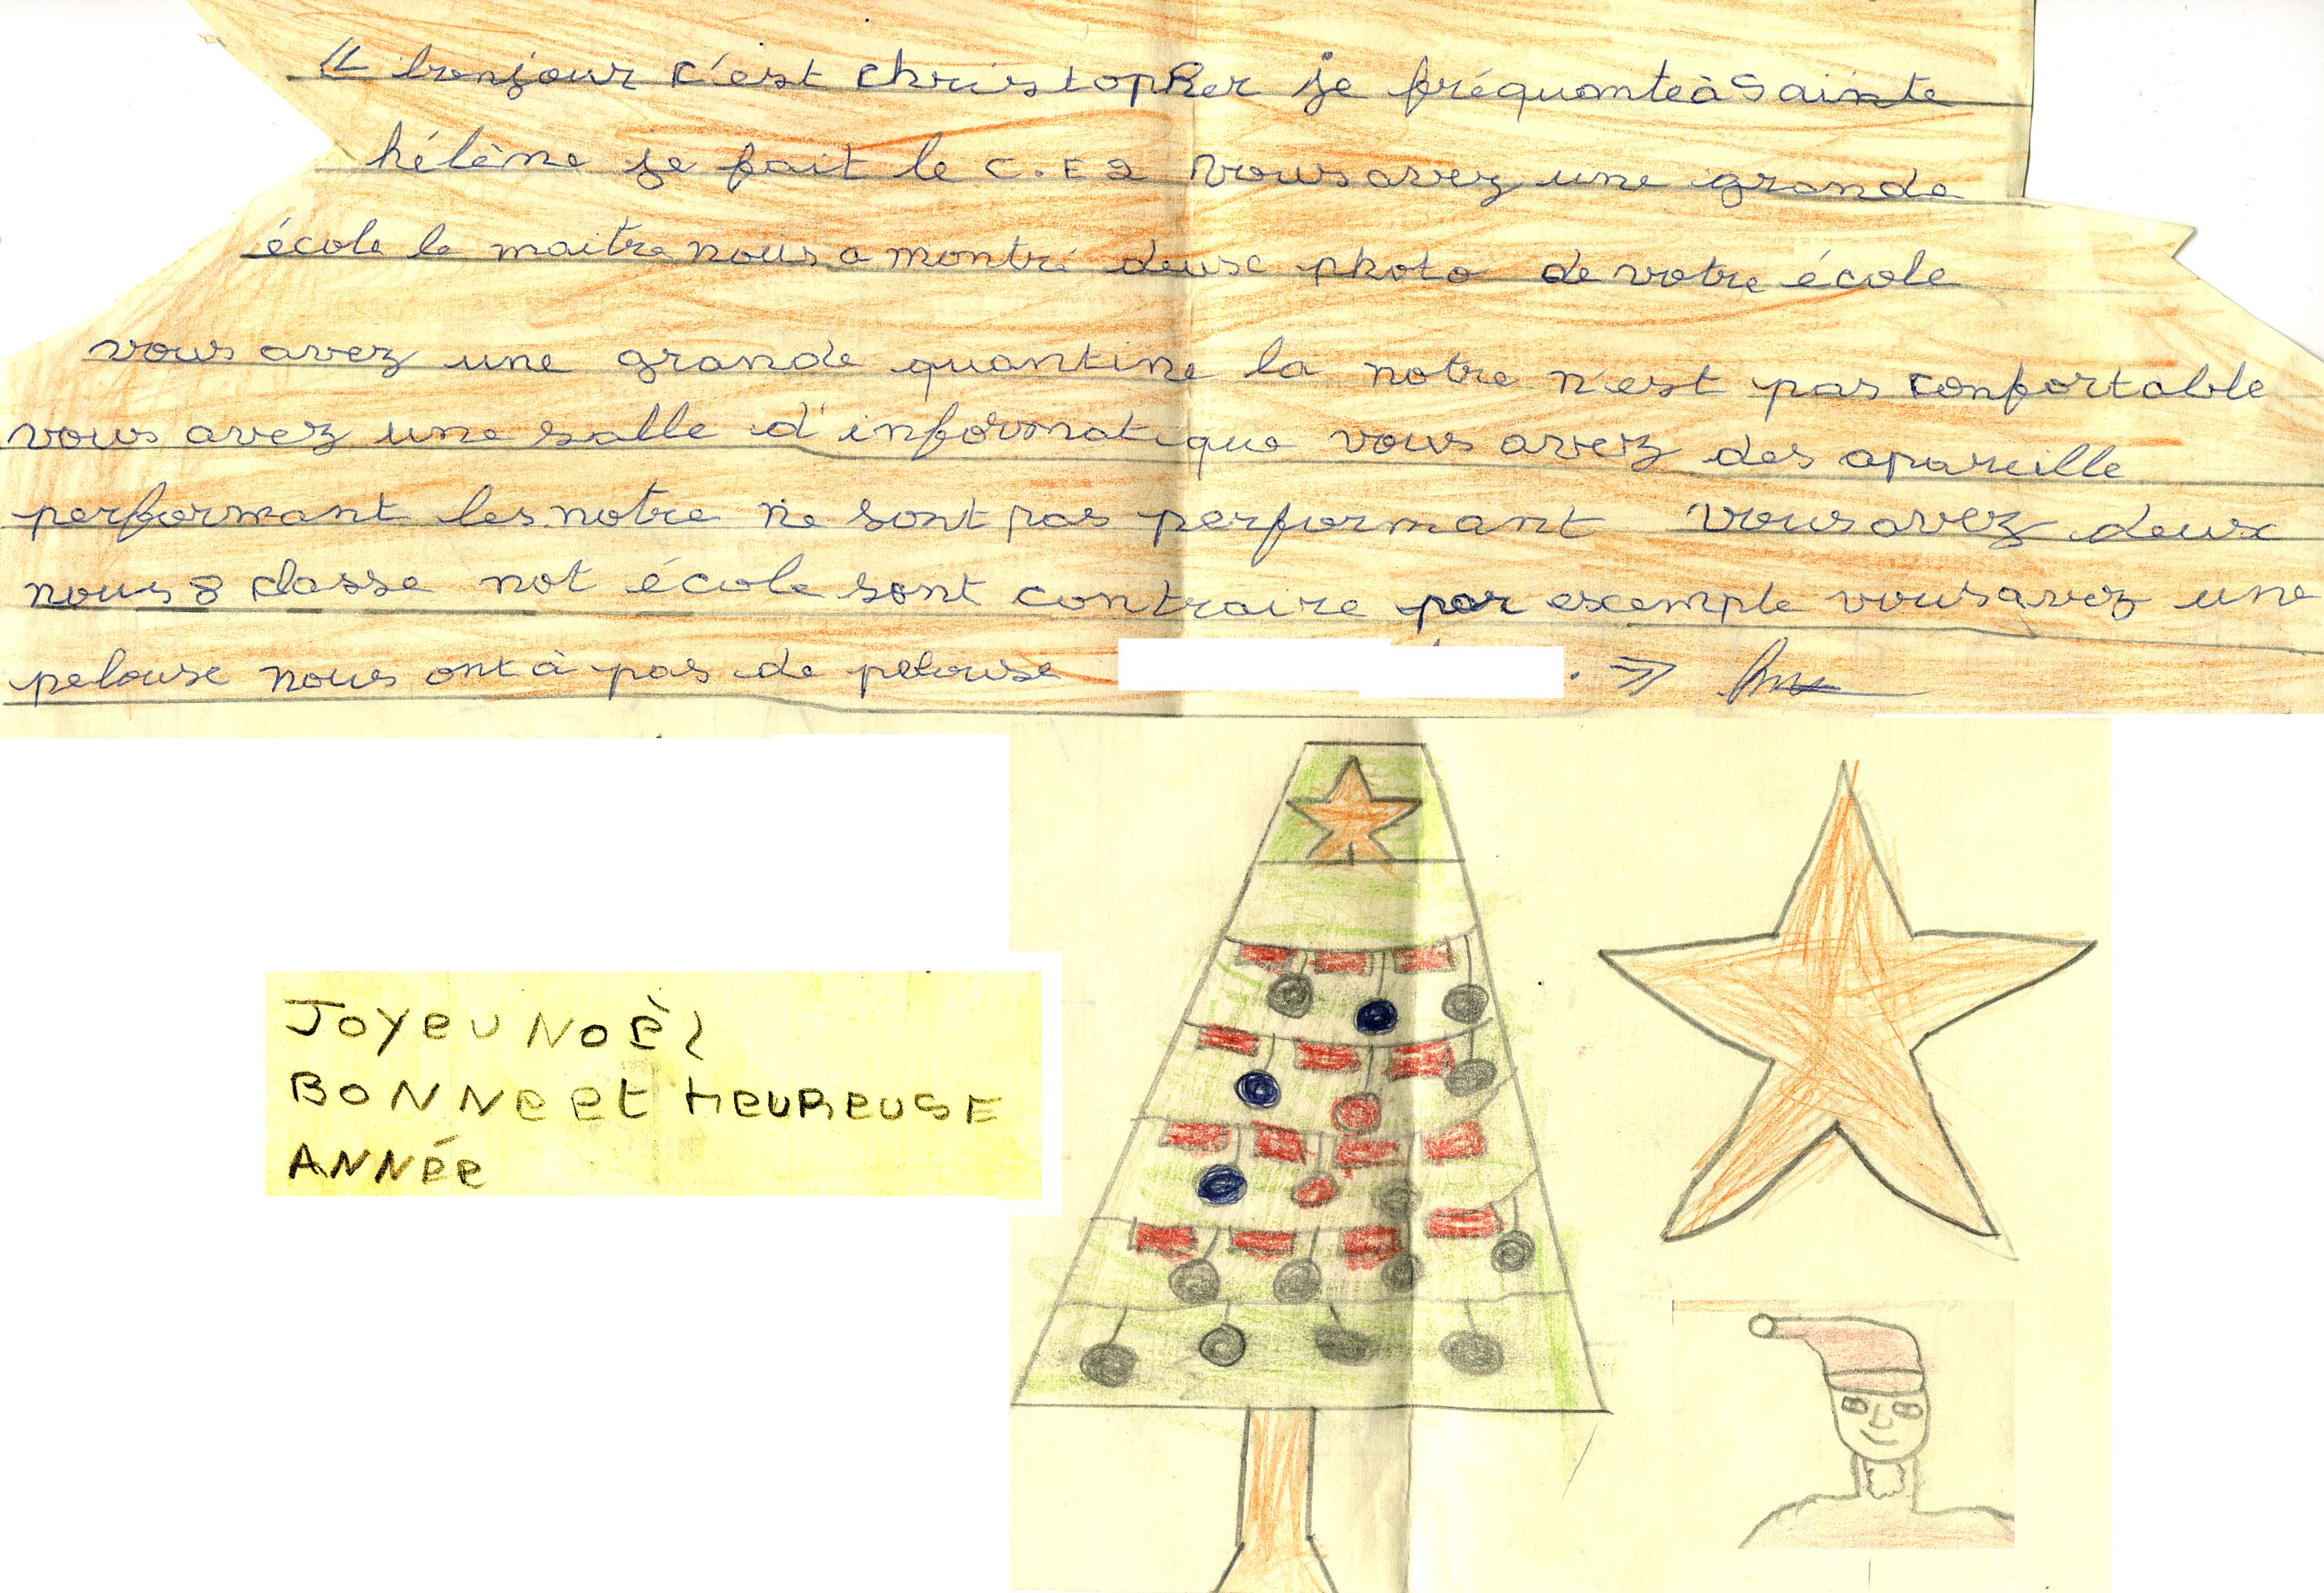 « bonjour c'est christopher je fréquanteà Sainte
hélène je fait le C.E2 vous avez une grande
école le maitre nous a montré deux photo de votre école
vous avez une grande quantine la notre n'est pas confortable
vous avez une salle d'informatique vous avez des apareille
performant les notre ne sont pas performant vous avez deux
nous 8 classe not école sont contraire par exemple vous avez une
pelouse nous ont à pas de pelouse . »
JOYEU NOÈL
BONNE et HEUREUSE
ANNÉE